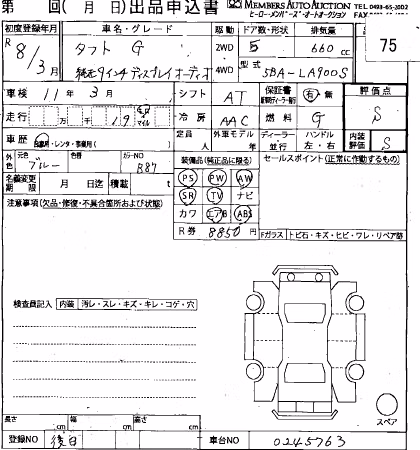 第 回( 月 日)出品申込書 MEMBERS AUTO AUCTION TEL 0493-65-2002
ヒーローメンバーズ・オートオークション FAX
初度登録年月 車名・グレード 駆動 ドア数・形状 排気量
R 8/3月 タフト G 2WD 5 660 cc 75
純正9インチディスプレイオーディオ 4WD 型式 5BA-LA900S
車検 11年3月 シフト AT 保証書 有 無 評価点
走行 万 千 19 マイル 冷房 AAC 燃料 G S
車歴 自家用・レンタ・事業用( ) 定員 人 外車モデル 年 ディーラー 並行 ハンドル 左・右 内装評価 S
外色 元色 ブルー 色替 カラーNO B87 装備品(純正品に限る) セールスポイント(正常に作動するもの)
名義変更期限 月 日迄 積載 t PS PW AW
注意事項(欠品・修復・不具合箇所および状態) SR TV ナビ
カワ エアB ABS
R券 8850円 Fガラス トビ石・キズ・ヒビ・ワレ・リペア跡
検査員記入 内装 汚レ・スレ・キズ・キレ・コゲ・穴
スペア
長さ cm 幅 cm 高さ cm
登録NO 後日 車台NO 0245763